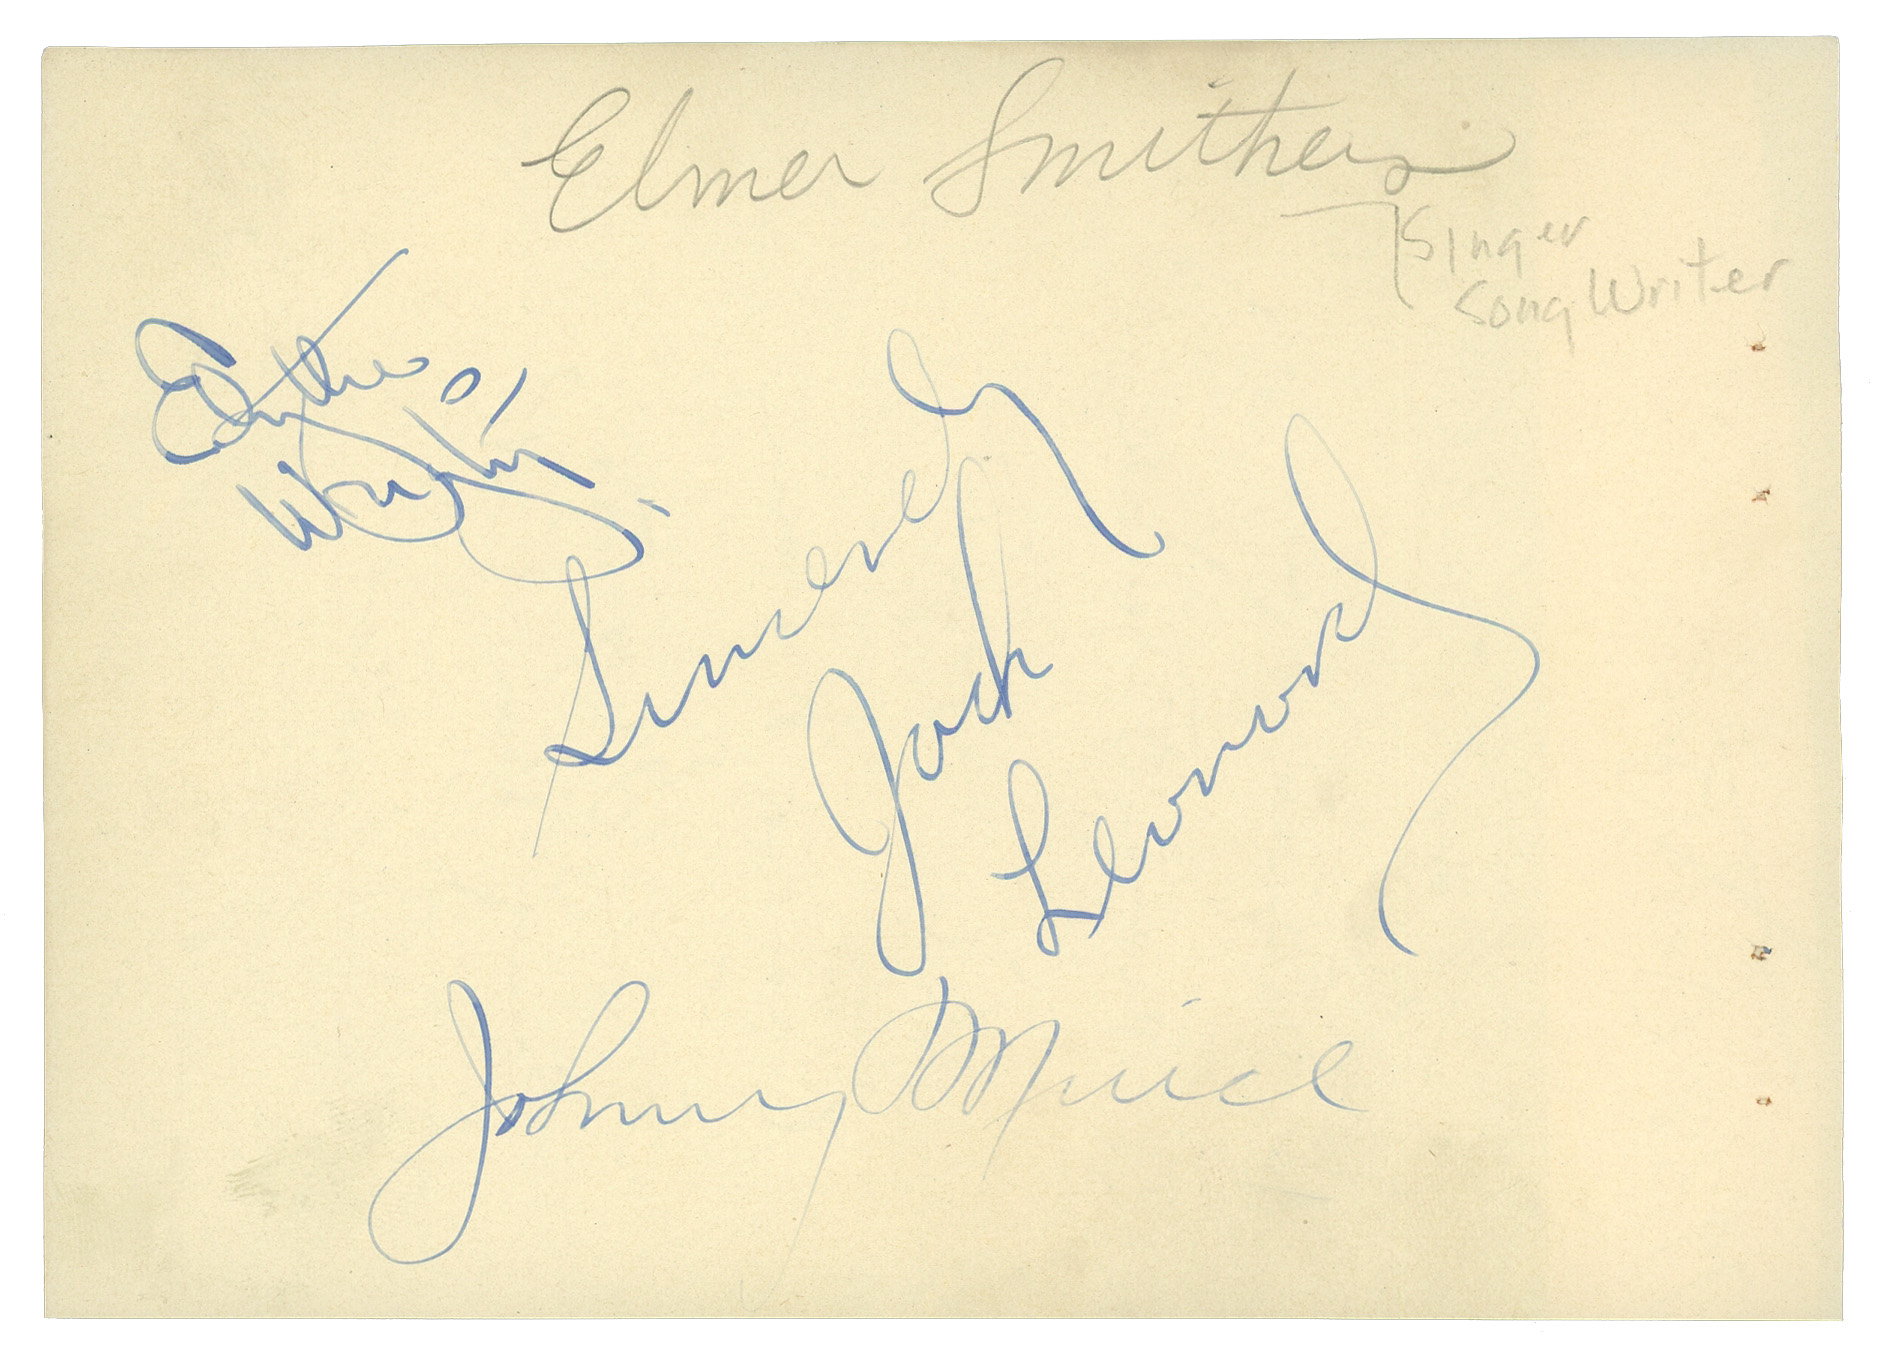 Elmer Smithers
Singer
Song Writer
Edythe
Wright
Sincerely
Jack
Leonard
Johnny Mince